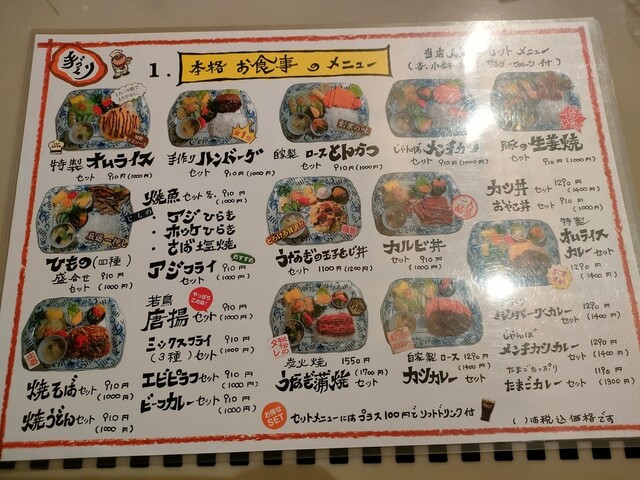 手づくり
1. 本格 お食事 のメニュー
当店 セット メニュー
特製 オムライス
セット 910円(1000円)
手作り ハンバーグ
セット 910円(1000円)
自家製 ロースとんかつ
セット 910円(1000円)
じゃんぼ メンチカツ
セット 910円(1000円)
豚の生姜焼
セット 910円(1000円)
ひもの(四種)
盛合せ 910円
セット (1000円)
焼魚 セット 各、910円(1000円)
・アジひらき
・ホッケひらき
・さば塩焼
アジフライ セット 910円(1000円)
おすすめ
若鳥
唐揚 セット 910円(1000円)
やっぱりこの味!
ミックスフライ
(3種) セット 910円(1000円)
エビピラフ セット 910円(1000円)
ビーフカレー セット 910円(1000円)
うなぎの玉子とじ丼
セット 1100円(1200円)
カルビ丼
セット 910円(1000円)
カツ丼 セット 1290円(1400円)
おやこ丼 セット 910円(1000円)
特製
オムライス
カレー
セット 1290円(1400円)
焼そば セット 910円(1000円)
焼うどん セット 910円(1000円)
炭火焼 1550円
うなぎ蒲焼 (1700円)
セット
自家製 ロース 1290円
カツカレー (1400円)
セット
ハンバーグカレー 1290円
セット (1400円)
じゃんぼ
メンチカツカレー 1290円
セット (1400円)
たまごたっぷり
たまごカレー セット 1190円(1300円)
お得なSET
セットメニューにはプラス100円でソフトドリンク付
( )は税込価格です